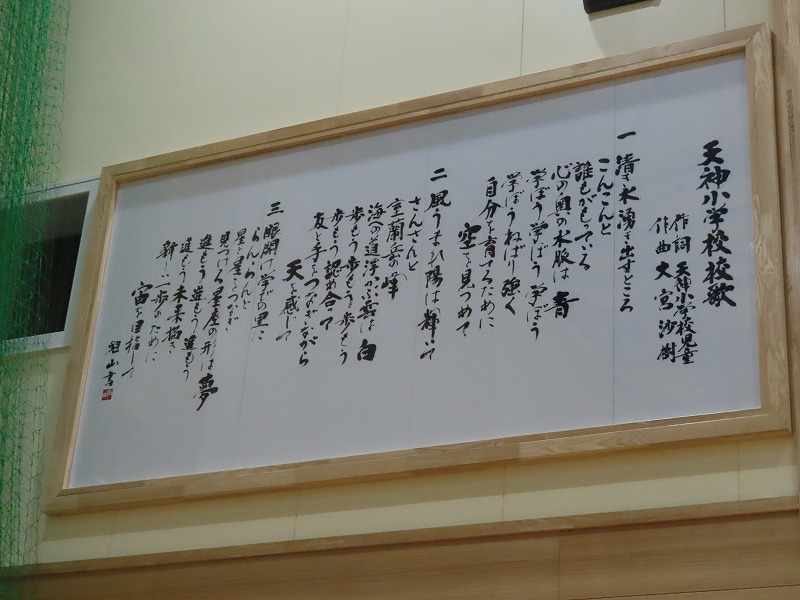 天神小学校校歌
作詞 天神小学校児童
作曲 大宮沙樹
一 清き水湧き出ずるところ
こんこんと
誰もがもっている
心の奥の水脈は 青
学ぼう 学ぼう 学ぼう
学ぼうねばり強く
自分を育てるために
空を見つめて
二 風うまひ陽は輝いて
さんさんと
室蘭岳の峰
海への道浮かぶ雲は 白
歩もう 歩もう 歩もう
歩もう 認め合って
友と手をつなぎながら
天を感じて
三 眼開け学びの里に
らんらんと
星と星をつなぎ
見つける星座の形は 夢
進もう 進もう 進もう
進もう 未来描き
新しい一歩のために
宙を目指して